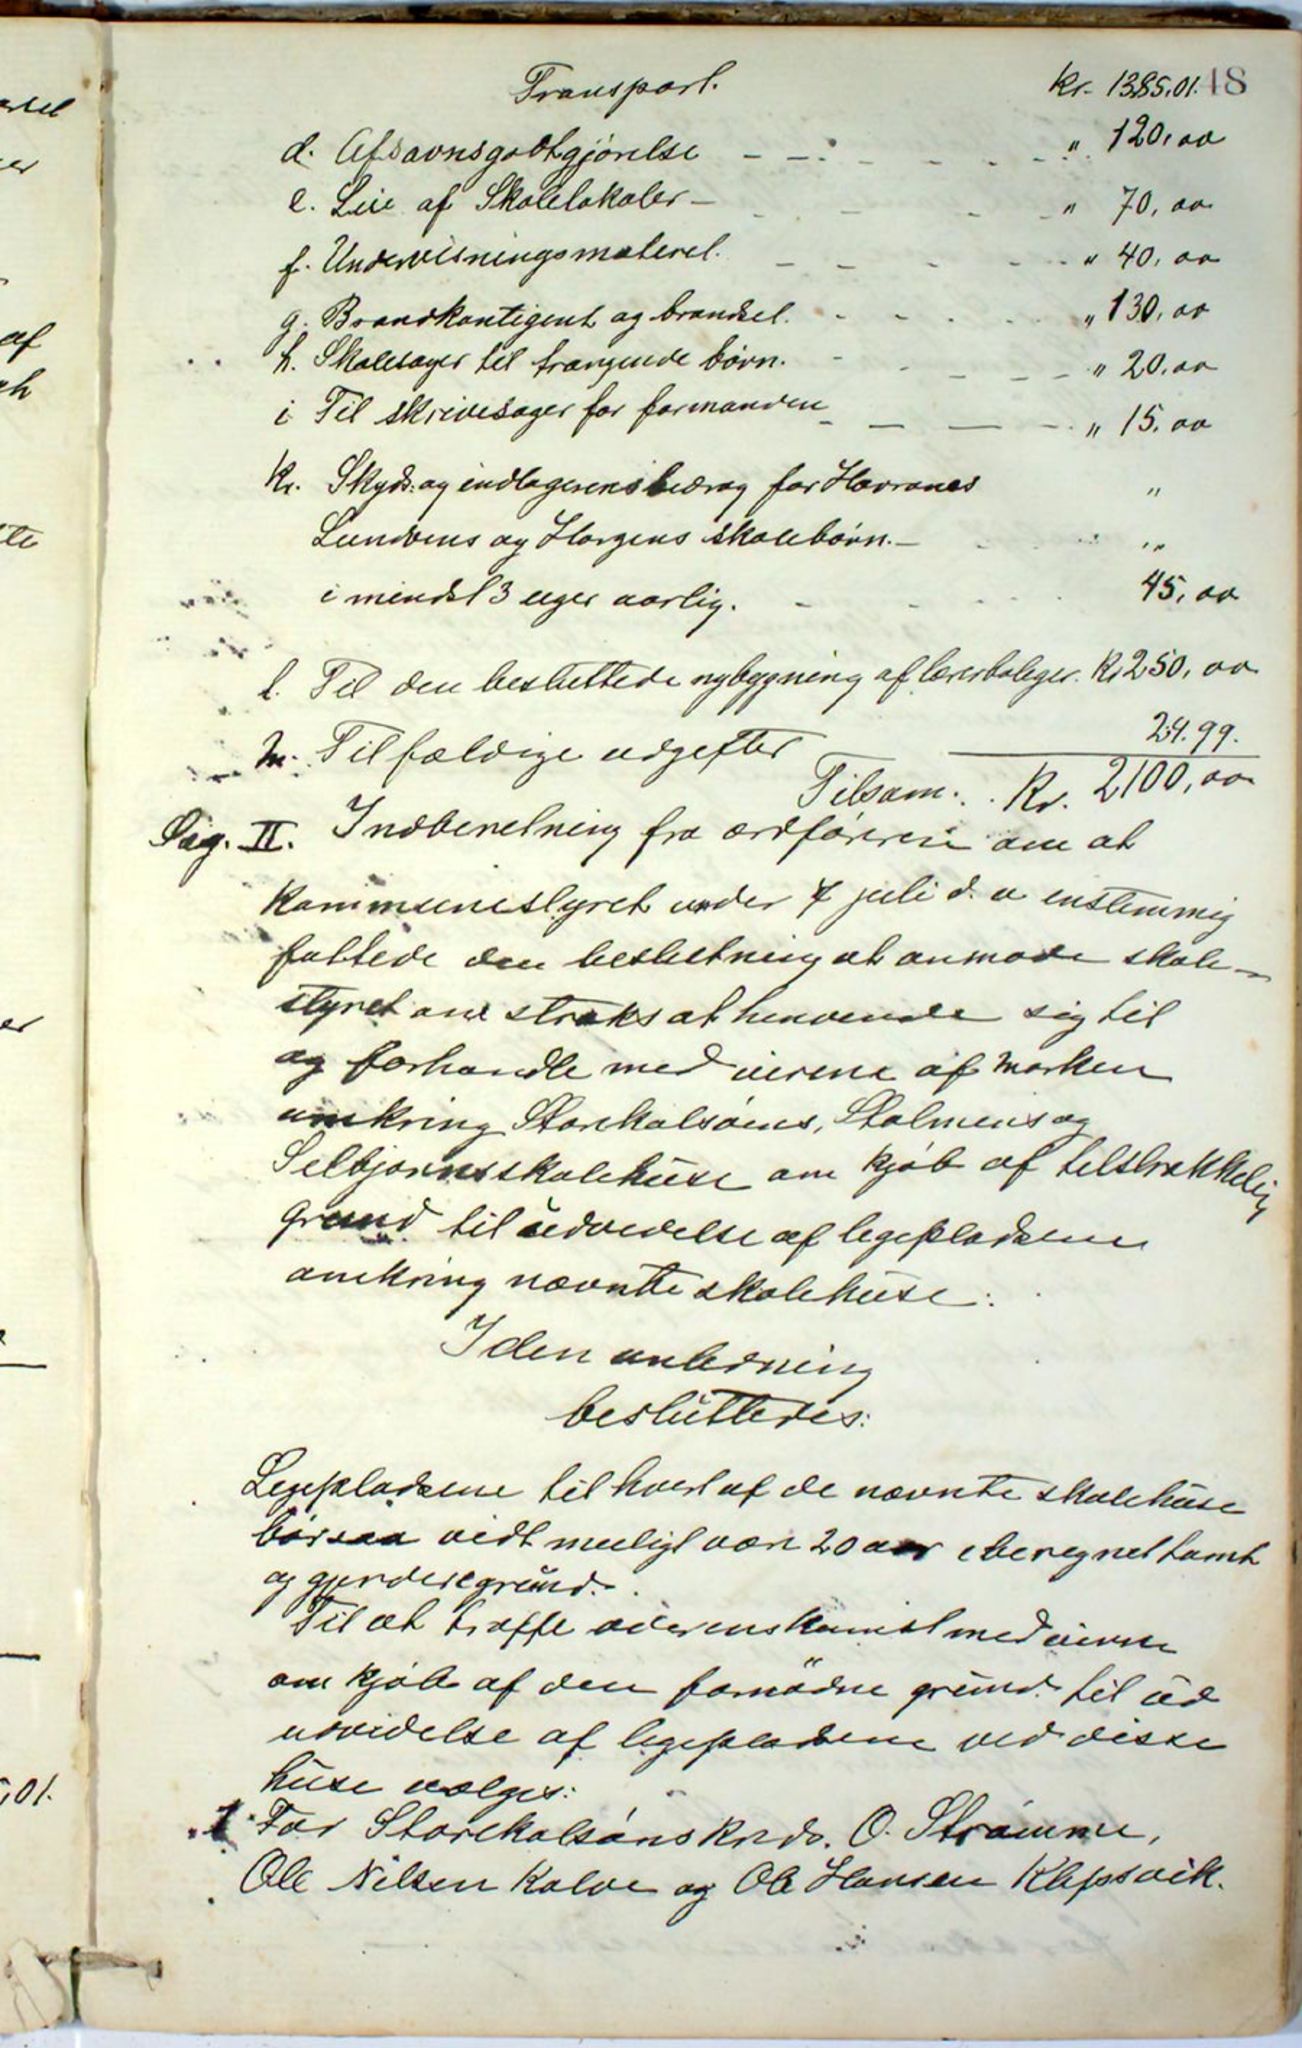 Transport. Kr. 1385.01. 48
d. Afsavnsgodtgjörelse " 120,00
e. Leie af Skolelokaler " 70,00
f. Undervisningsmateriel. " 40,00
g. Brandkontigent og brændsel. " 130,00
h. Skolesager til trængende börn. " 20,00
i Til skrivesager for formanden " 15,00
k. Skyds: og indlogerensbidrag for Havranes "
Lundens og Horgens skolebörn. "
i mindst 3 uger aarlig. 45,00
l. Til den besluttede nybygning af lærerboliger. Kr 250,00
m. Tilfældige udgifter 24.99.
Tilsam. Kr. 2100,00
Sag. II. Indberetning fra ordföreren om at
kommunestyret under 7 juli d. a enstemmig
fattede den beslutning at anmode skole-
styret om straks at henvende sig til
og forhandle med eierne af marken
omkring Storekalsöens, Stolmens og
Selbjørnsskolehuse om kjöb af tilstrækkelig
grund til udvidelse af legepladsene
omkring nævnte skolehuse.
I den anledning
besluttedes:
Legepladsene til hvert af de nævnte skolehuse
bör saa vidt muligt være 20 aar iberegnet tomt
og gjerdesgrund.
Til at træffe overenskomst med eierne
om kjöb af den fornödne grund til ud
udvidelse af legepladsene ved disse
huse vælges:
1 For Storekalsöns krds. O. Strömme,
Ole Nilsen Kalve og Ole Hansen Klepsvik.